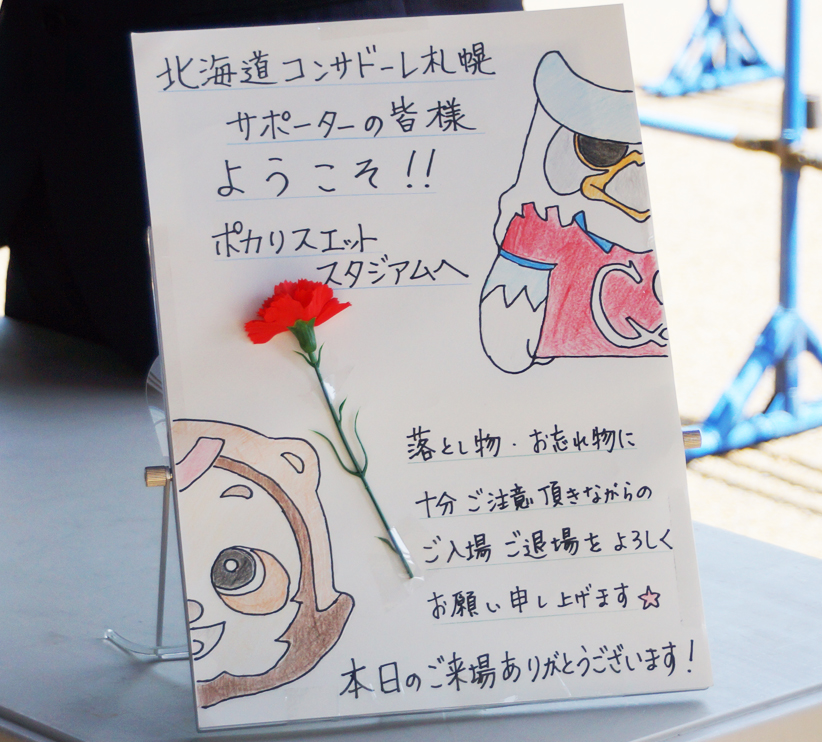 北海道コンサドーレ札幌
サポーターの皆様
ようこそ!!
ポカリスエット
スタジアムへ
落とし物・お忘れ物に
十分ご注意頂きながらの
ご入場ご退場をよろしく
お願い申し上げます☆
本日のご来場ありがとうございます!